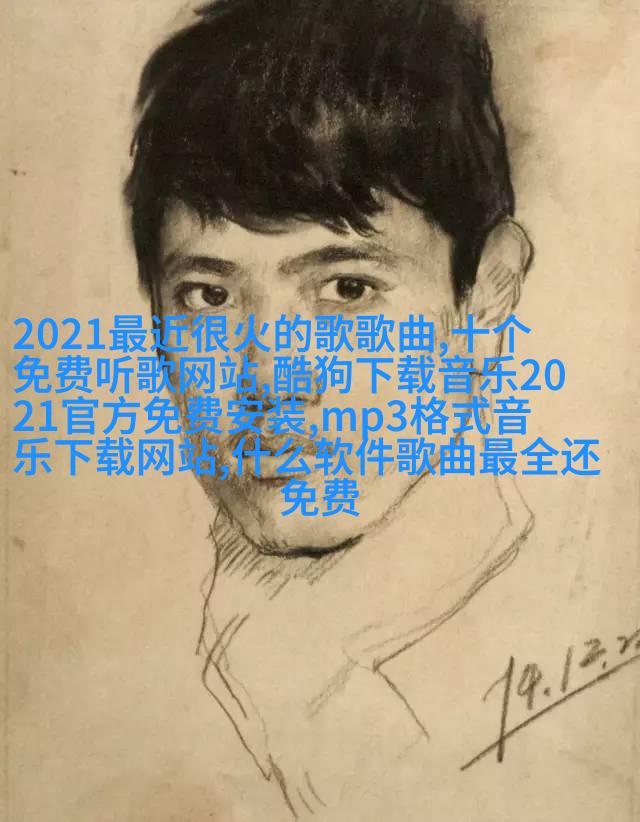 2021最近很火的歌歌曲,十个
免费听歌网站,酷狗下载音乐20
21官方免费安装,mp3格式音
乐下载网站,什么软件歌曲最全还
免费